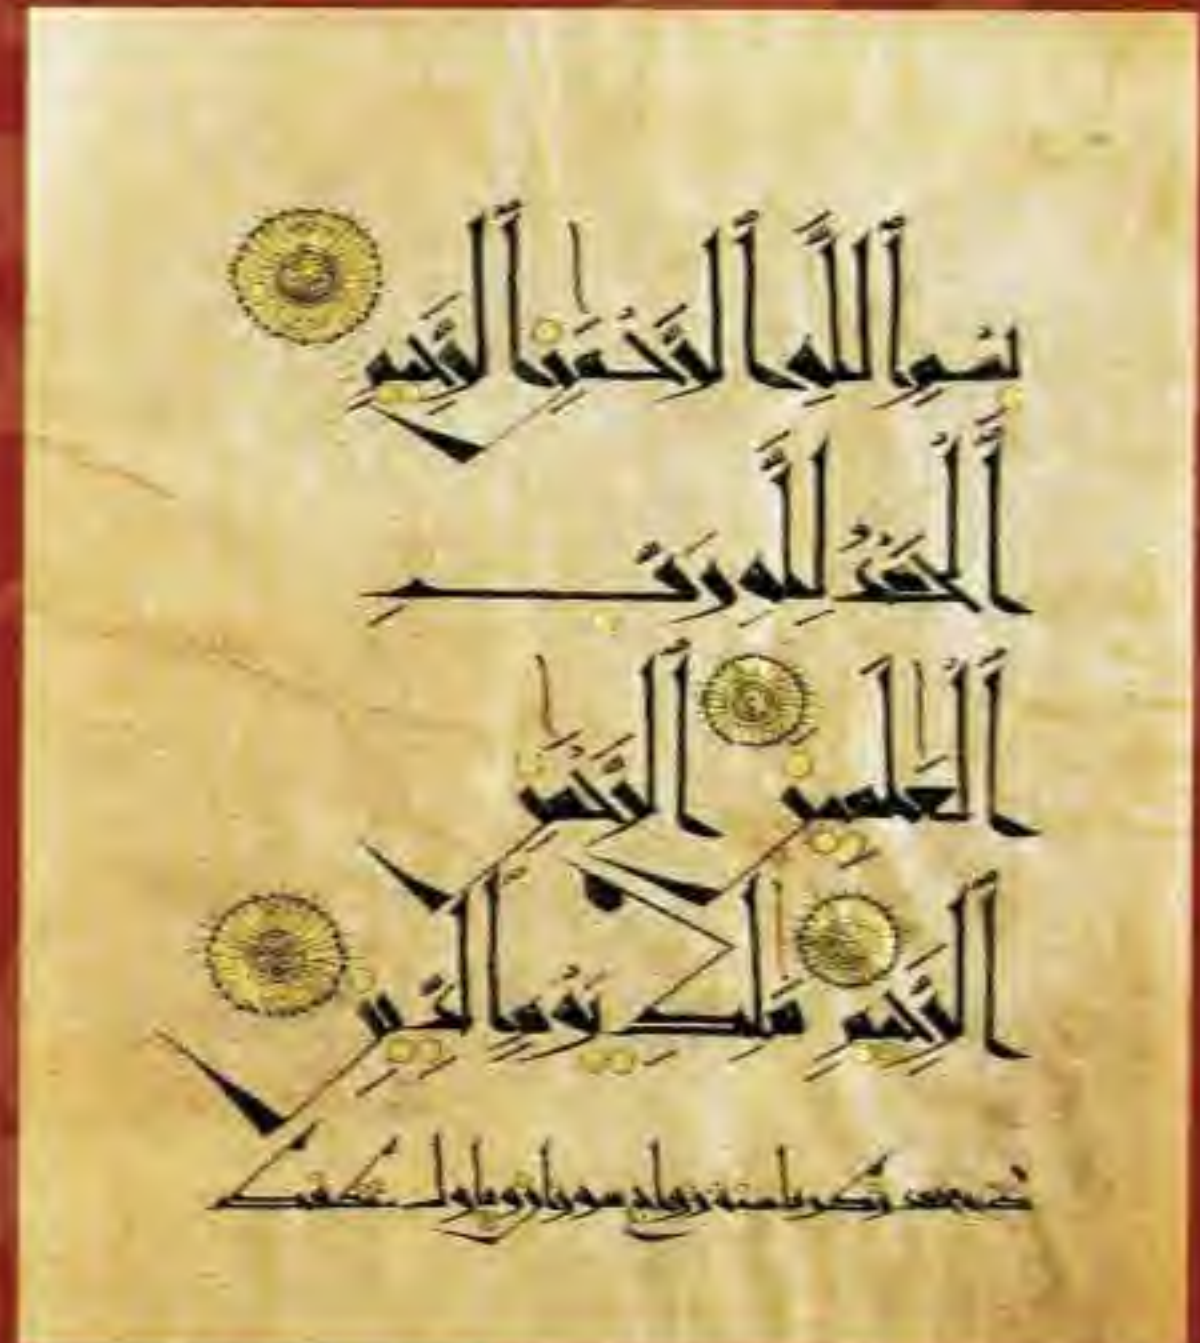 بِسْمِ ٱللَّهِ ٱلرَّحْمَٰنِ ٱلرَّحِيمِ
ٱلْحَمْدُ لِلَّهِ رَبِّ
ٱلْعَٰلَمِينَ ٱلرَّحْمَٰنِ
ٱلرَّحِيمِ مَٰلِكِ يَوْمِ ٱلدِّينِ